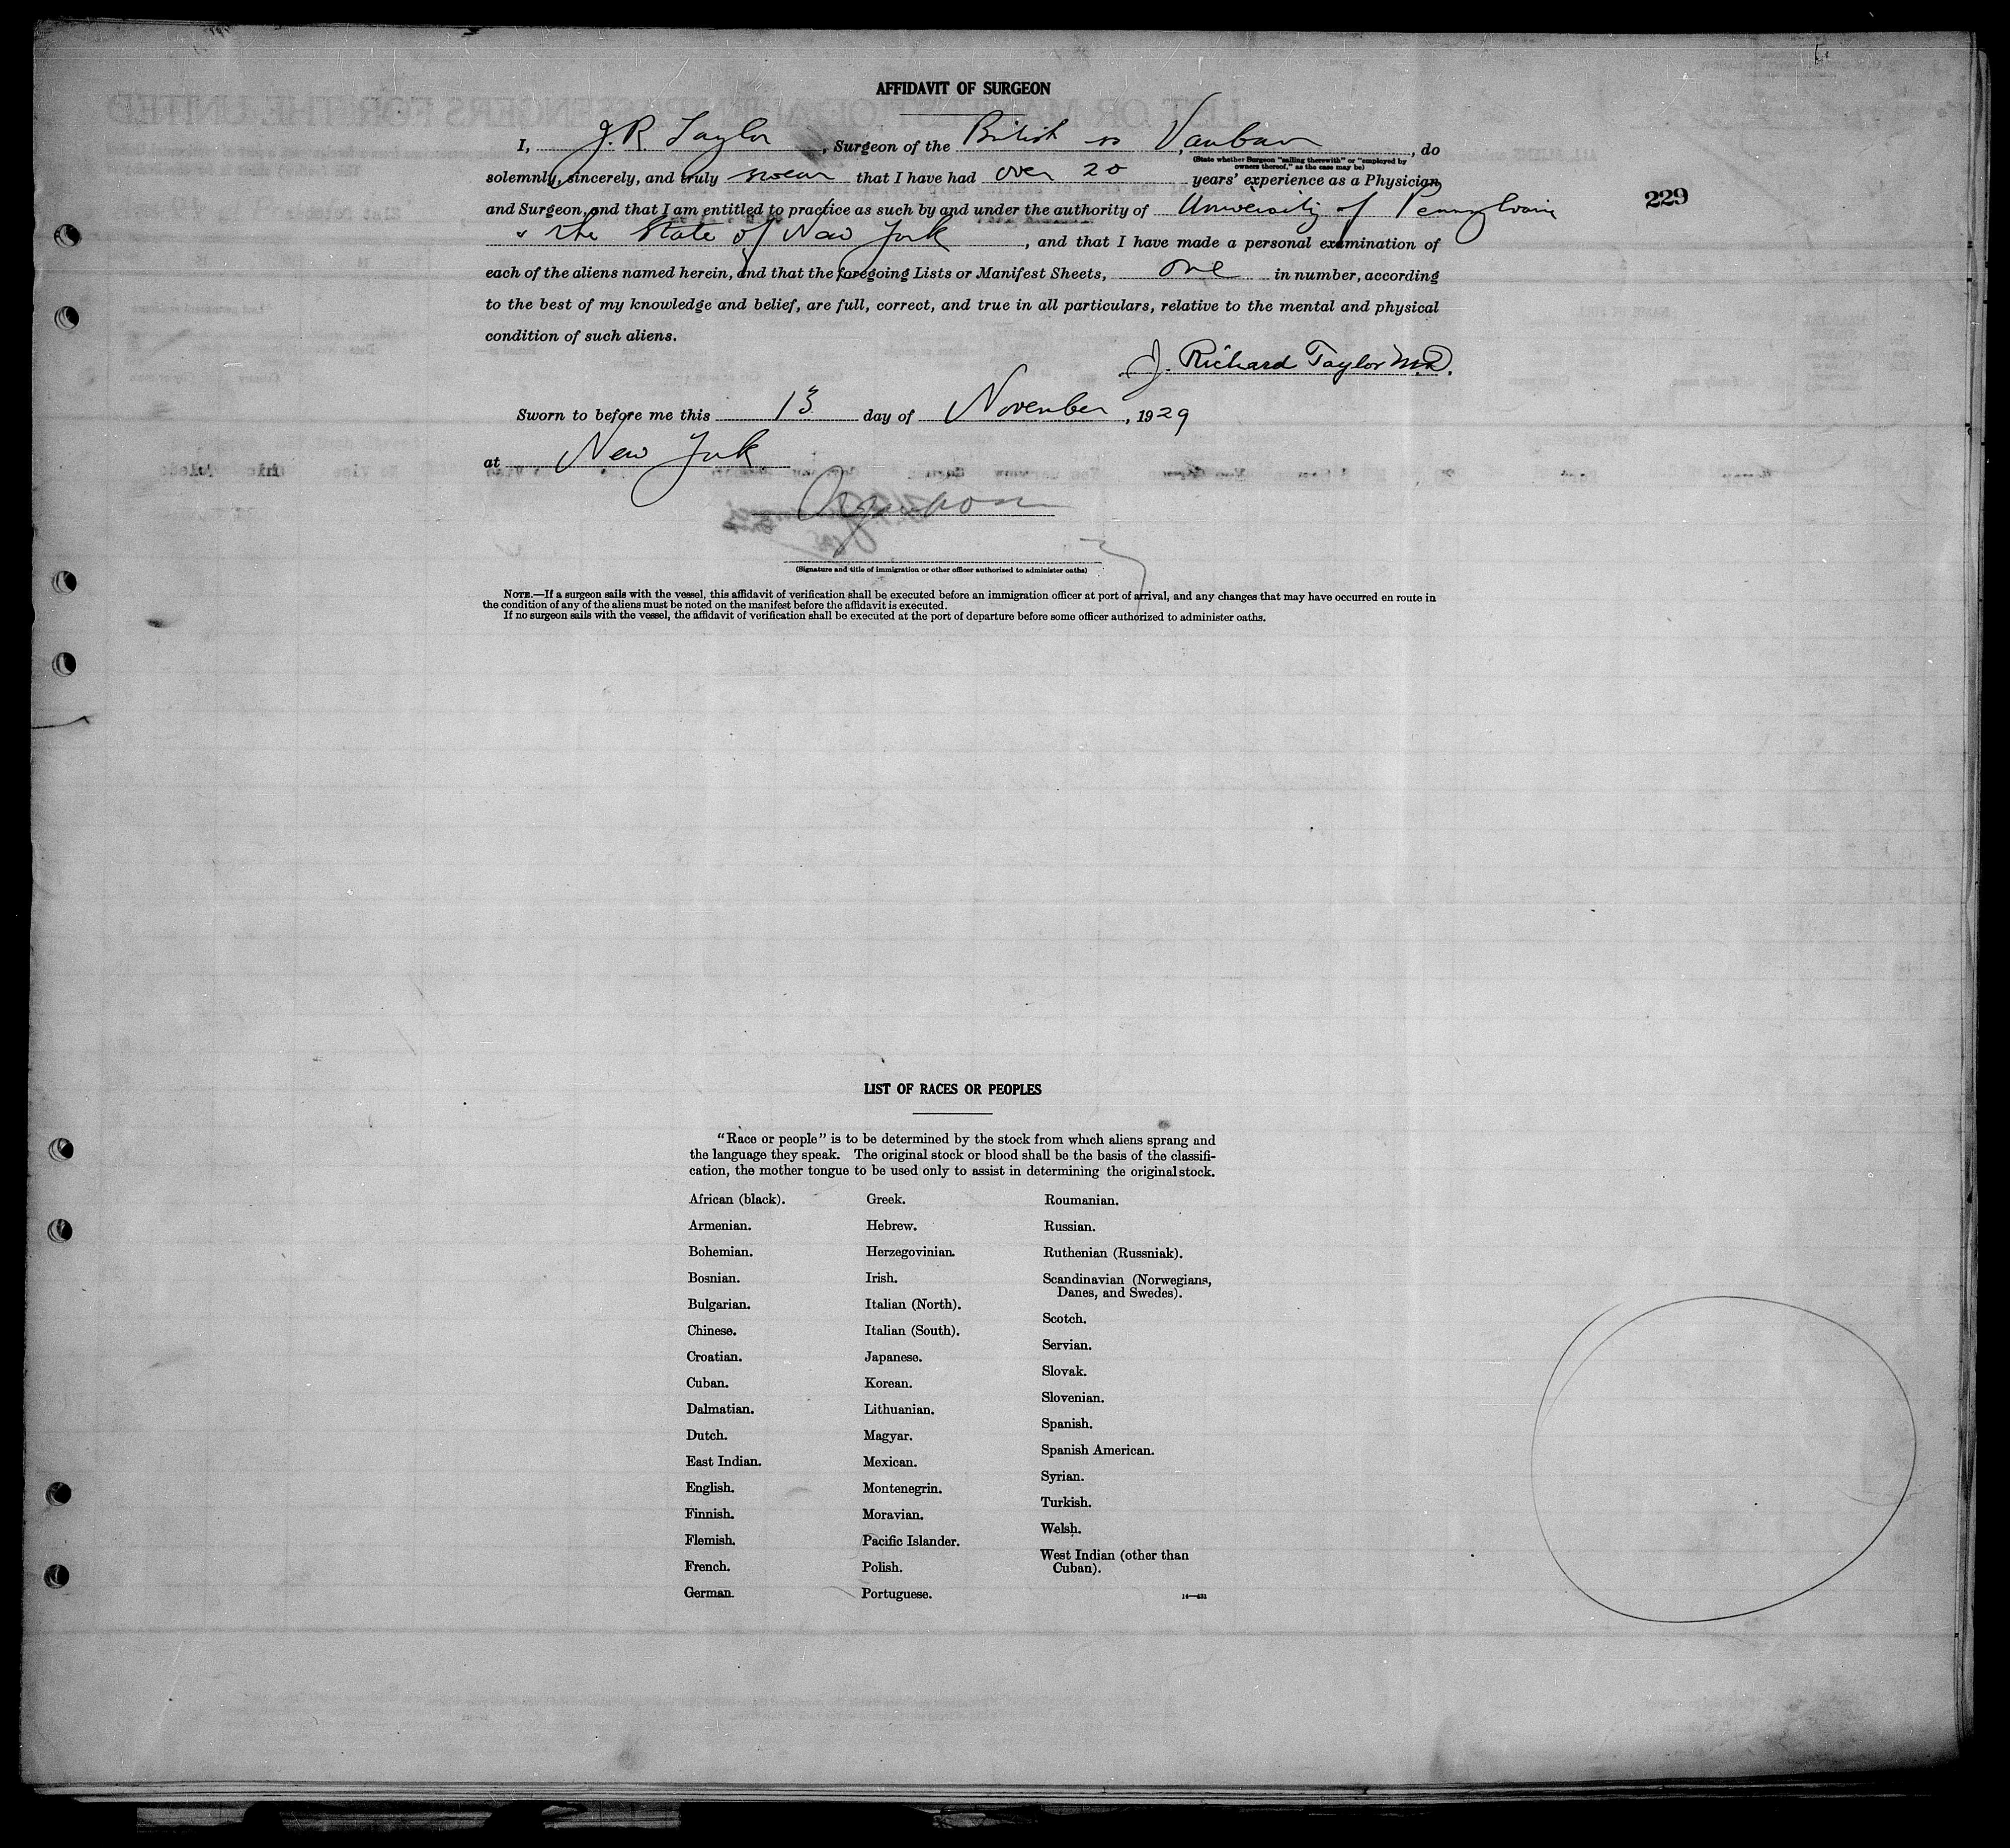 AFFIDAVIT OF SURGEON
I, J. R. Taylor, Surgeon of the British ss Vauban, do
(State whether Surgeon "sailing therewith" or "employed by
owners thereof," as the case may be)
solemnly, sincerely, and truly swear that I have had over 20 years' experience as a Physician
229
and Surgeon, and that I am entitled to practice as such by and under the authority of University of Pennsylvania
& the State of New York, and that I have made a personal examination of
each of the aliens named herein, and that the foregoing Lists or Manifest Sheets, one in number, according
to the best of my knowledge and belief, are full, correct, and true in all particulars, relative to the mental and physical
condition of such aliens.
J. Richard Taylor M.D.
Sworn to before me this 13 day of November, 1929
at New York
(Signature and title of immigration or other officer authorized to administer oaths)
NOTE.—If a surgeon sails with the vessel, this affidavit of verification shall be executed before an immigration officer at port of arrival, and any changes that may have occurred en route in
the condition of any of the aliens must be noted on the manifest before the affidavit is executed.
If no surgeon sails with the vessel, the affidavit of verification shall be executed at the port of departure before some officer authorized to administer oaths.
LIST OF RACES OR PEOPLES
"Race or people" is to be determined by the stock from which aliens sprang and
the language they speak. The original stock or blood shall be the basis of the classifi-
cation, the mother tongue to be used only to assist in determining the original stock.
African (black).
Armenian.
Bohemian.
Bosnian.
Bulgarian.
Chinese.
Croatian.
Cuban.
Dalmatian.
Dutch.
East Indian.
English.
Finnish.
Flemish.
French.
German.
Greek.
Hebrew.
Herzegovinian.
Irish.
Italian (North).
Italian (South).
Japanese.
Korean.
Lithuanian.
Magyar.
Mexican.
Montenegrin.
Moravian.
Pacific Islander.
Polish.
Portuguese.
Roumanian.
Russian.
Ruthenian (Russniak).
Scandinavian (Norwegians,
Danes, and Swedes).
Scotch.
Servian.
Slovak.
Slovenian.
Spanish.
Spanish American.
Syrian.
Turkish.
Welsh.
West Indian (other than
Cuban).